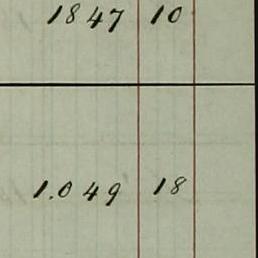 1847 10
1.049 18